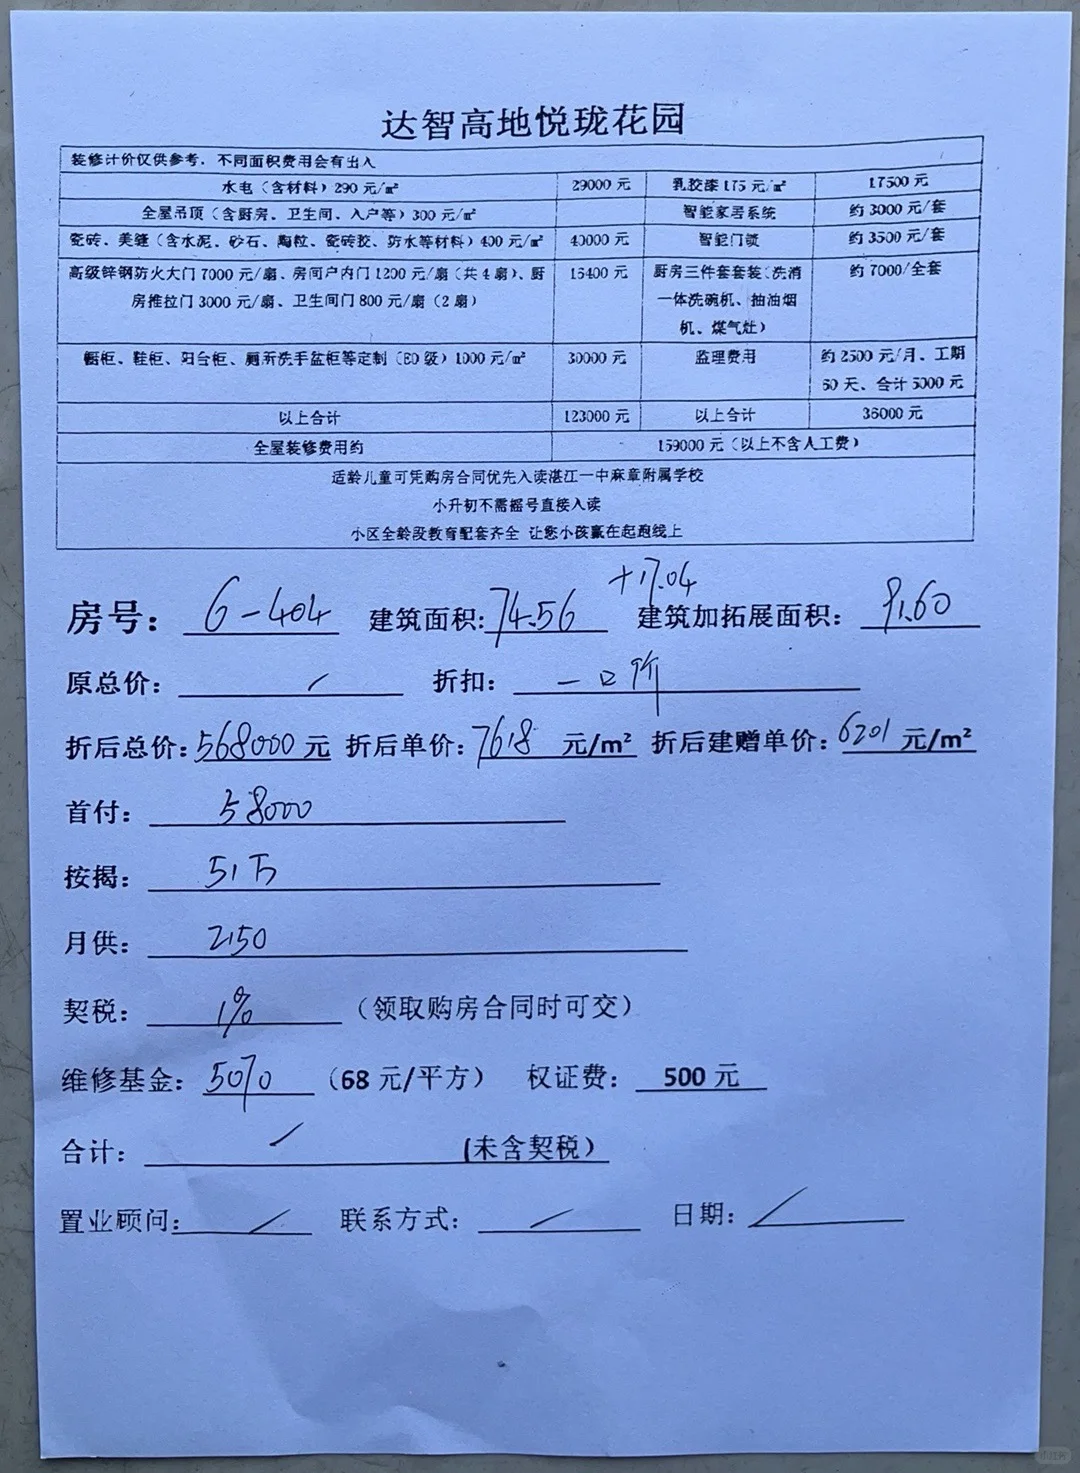 达智高地悦珑花园
装修计价仅供参考，不同面积费用会有出入
水电（含材料）290 元/㎡ 29000 元 乳胶漆 175 元/㎡ 17500 元
全屋吊顶（含厨房、卫生间、入户等）300 元/㎡ 智能家居系统 约 3000 元/套
瓷砖、美缝（含水泥、砂石、陶粒、瓷砖胶、防水等材料）400 元/㎡ 40000 元 智能门锁 约 3500 元/套
高级锌钢防火大门 7000 元/扇、房间户内门 1200 元/扇（共 4 扇）、厨 16400 元 厨房三件套套装（洗消 约 7000/全套
房推拉门 3000 元/扇、卫生间门 800 元/扇（2 扇） 一体洗碗机、抽油烟
机、煤气灶）
橱柜、鞋柜、阳台柜、厕所洗手盆柜等定制（E0 级）1000 元/㎡ 30000 元 监理费用 约 2500 元/月、工期
60 天、合计 5000 元
以上合计 123000 元 以上合计 36000 元
全屋装修费用约 159000 元（以上不含人工费）
适龄儿童可凭购房合同优先入读湛江一中麻章附属学校
小升初不需摇号直接入读
小区全龄段教育配套齐全 让您小孩赢在起跑线上
+17.04
房号： 6-404 建筑面积: 74.56 建筑加拓展面积： 91.60
原总价： / 折扣： 一口价
折后总价: 568000 元 折后单价: 7618 元/m² 折后建赠单价: 6201 元/m²
首付： 58000
按揭： 51万
月供： 2150
契税： 1% （领取购房合同时可交）
维修基金： 5070 （68 元/平方） 权证费： 500 元
合计： / (未含契税）
置业顾问: / 联系方式： / 日期： /